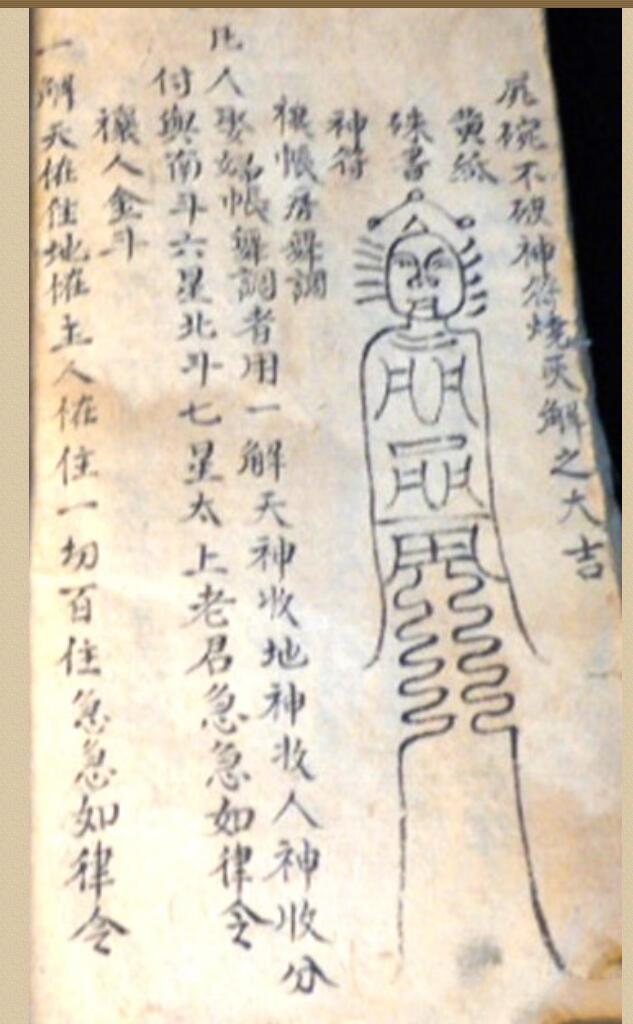 碗不破神符燒灰解之大吉
黃紙
硃書
神符
禳帳房舞調
比人娶帳舞調者用一解天神收地神收人神收分
付與南斗六星北斗七星太上老君急急如律令
禳人金斗
一解天住地主人住一切百住急急如律令